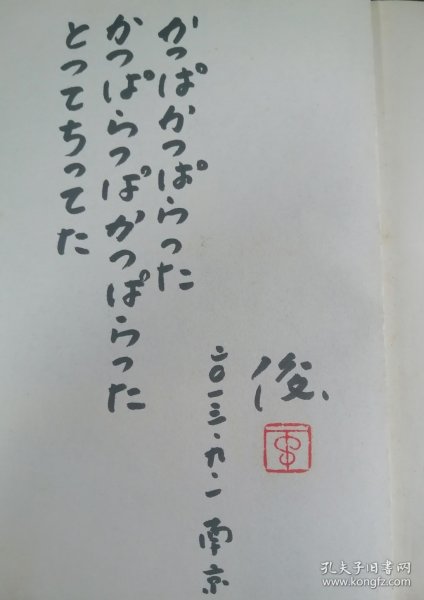 かっぱかっぱらった
かっぱらっぱかっぱらった
とってちってた
俊
二〇一三.九.一 南京
孔夫子旧书网
www.kongfz.com